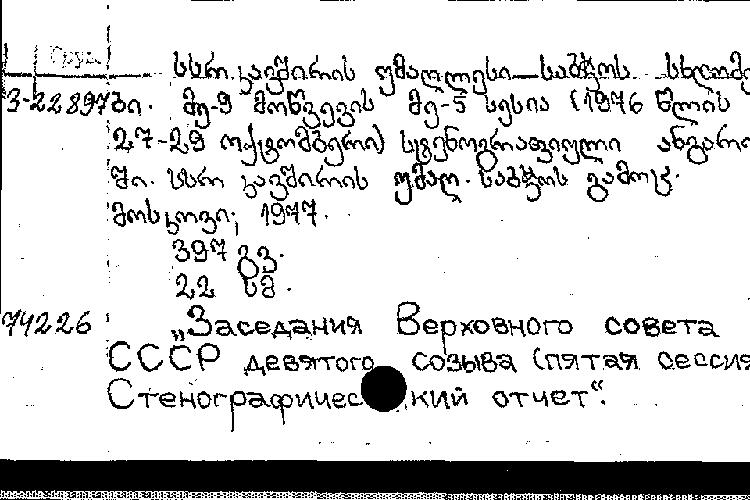 Груз
სსრ კავშირის უმაღლესი საბჭოს სხდომე
З-22897 ბი. მე-9 მოწვევის მე-5 სესია (1976 წლის
27-29 ოქტომბერი) სტენოგრაფიული ანგარი
ში. სსრ კავშირის უმაღ. საბჭოს გამოც.
მოსკოვი; 1977.
397 გვ.
22 სმ.
74226 „Заседания Верховного совета
СССР девятого созыва (пятая сессия
Стенографичес кий отчет“.